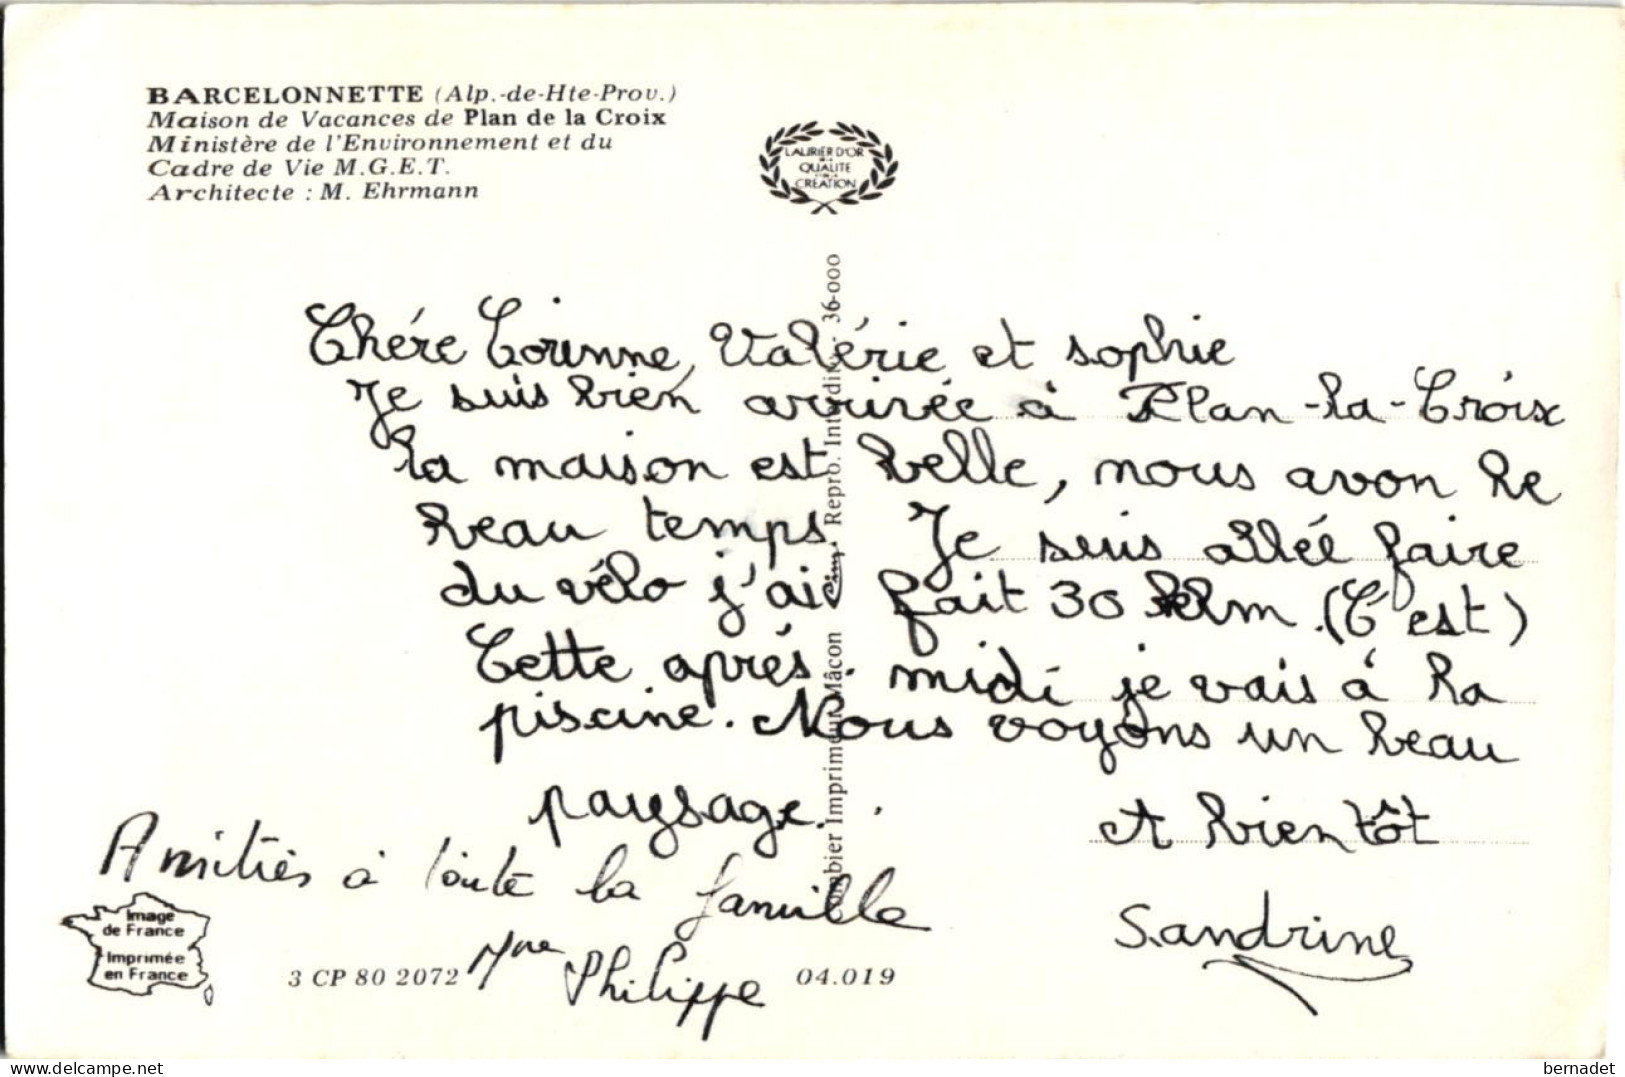 BARCELONNETTE (Alp.-de-Hte-Prov.)
Maison de Vacances de Plan de la Croix
Ministère de l'Environnement et du
Cadre de Vie M.G.E.T.
Architecte : M. Ehrmann
LAURIER D'OR
DE LA
QUALITE
CREATION
Chére Corinne, Valérie et sophie
Je suis bien arrivée à Plan-la-Croix
la maison est belle, nous avon le
beau temps. Je suis allée faire
du vélo j'ai fait 30 klm. (C'est)
Cette aprés-midi je vais à la
piscine. Nous voyons un beau
paysage.
A bientôt
Sandrine
Amitiés à toute la famille
Mme Philippe
Combier Imprimeur Mâcon Cim Repro. Interdite 36-000
Image
de France
Imprimée
en France
3 CP 80 2072
04.019
delcampe.net
bernadet